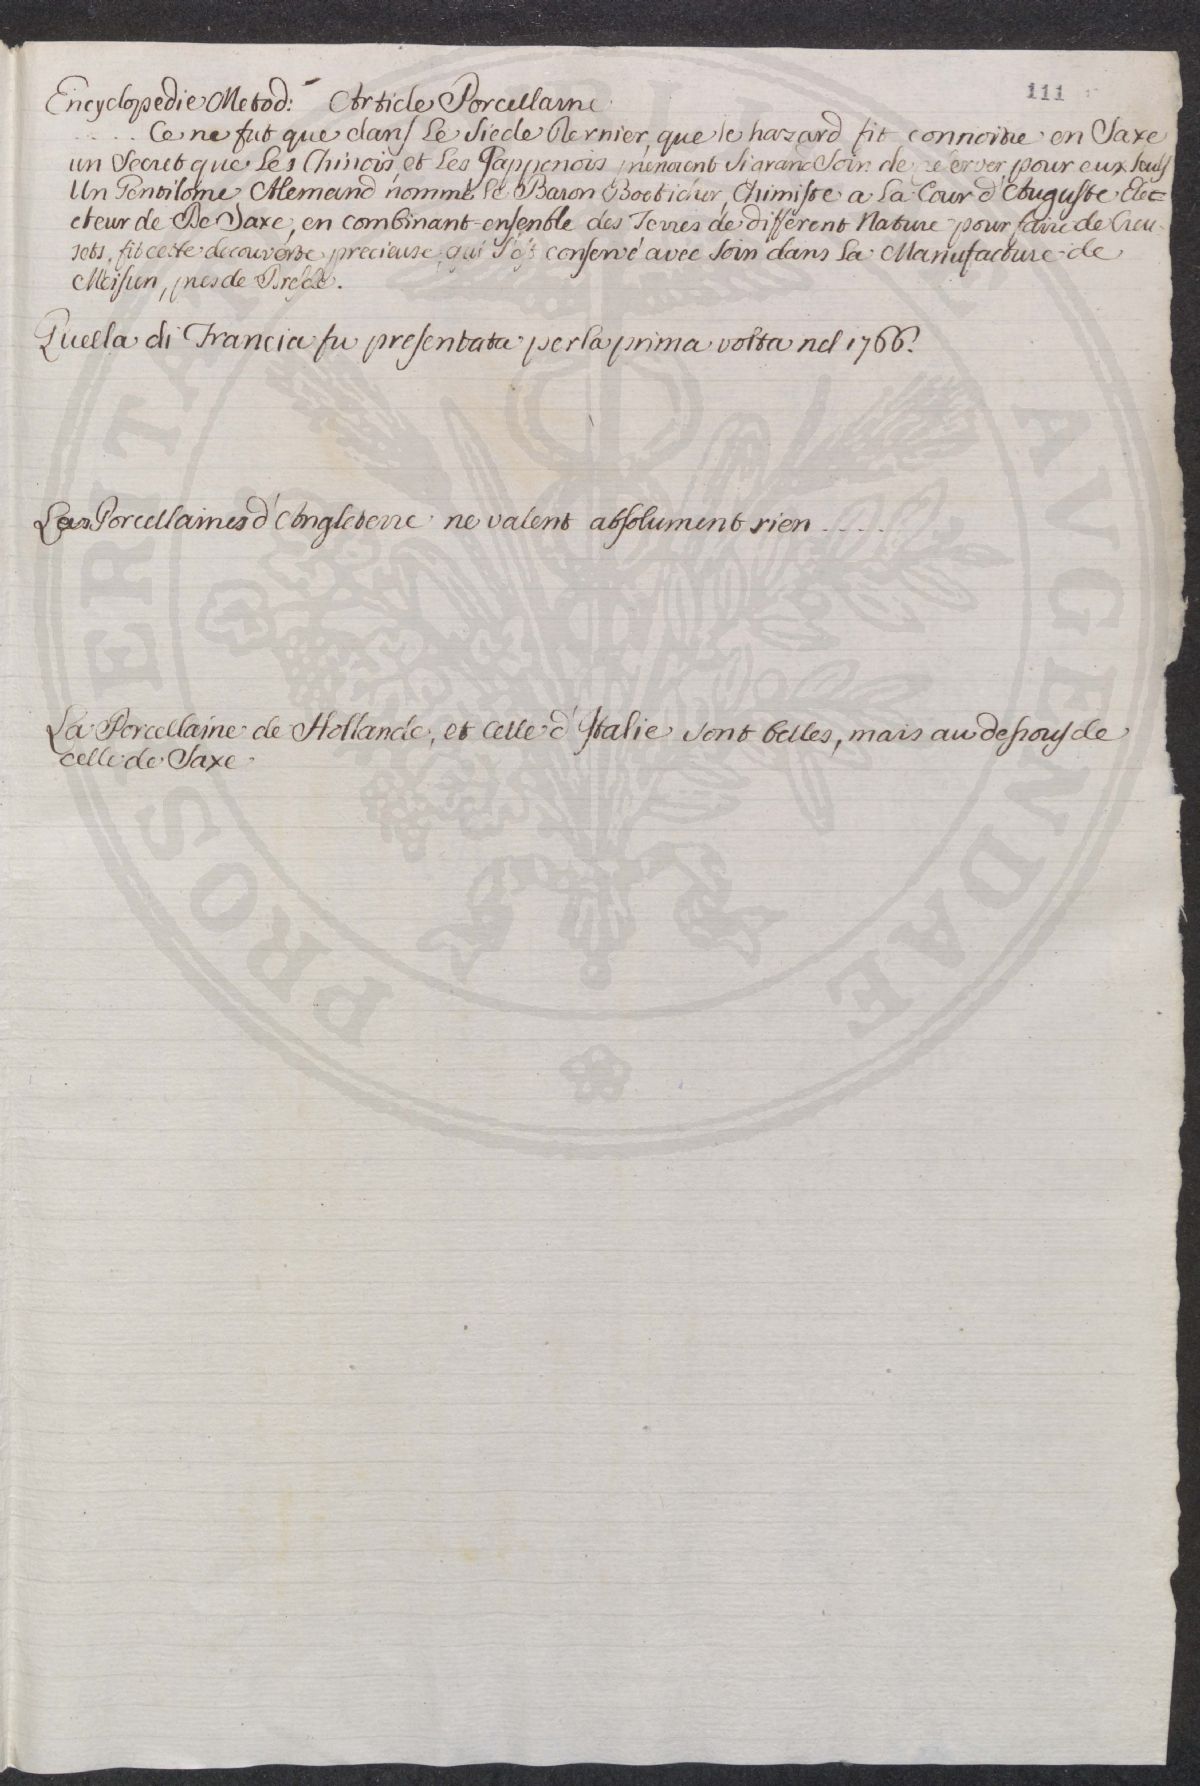 111
Encyclopedie Metod: Article Porcellaine
..... Ce ne fut que dans Le Siecle Dernier, que le hazard fit connoitre en Saxe
un Secret que Les Chinois et Les Jappenois prenoient Si grand Soin de reserver pour eux seuls
Un Gentilome Alemand nommé le Baron Boeticher, Chimiste a La Cour d'Auguste Elec=
cteur de De Saxe, en combinant ensemble des Terres de different Nature pour faire de Creu-
sets, fit cette decouverte precieuse, qui s'est conservé avec soin dans La Manufacture de
Meissen, pres de Dresde.
Quella di Francia fu presentata per la prima volta nel 1766.
Les Porcellaines d'Angleterre ne valent absolument rien .....
La Porcellaine de Hollande, et celle d'Italie sont belles, mais au dessous de
celle de Saxe.
PROSPERITATI AVGENDAE